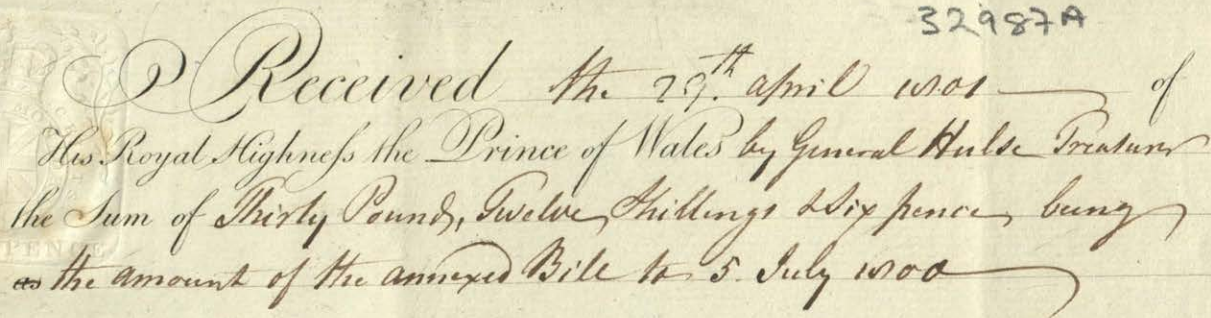 32987A
Received the 29th. April 1801 of
His Royal Highneſs the Prince of Wales by General Hulse Treasurer
the Sum of Thirty Pounds, Twelve Shillings & Six pence, being
as the amount of the annexed Bill to 5. July 1800
PENCE